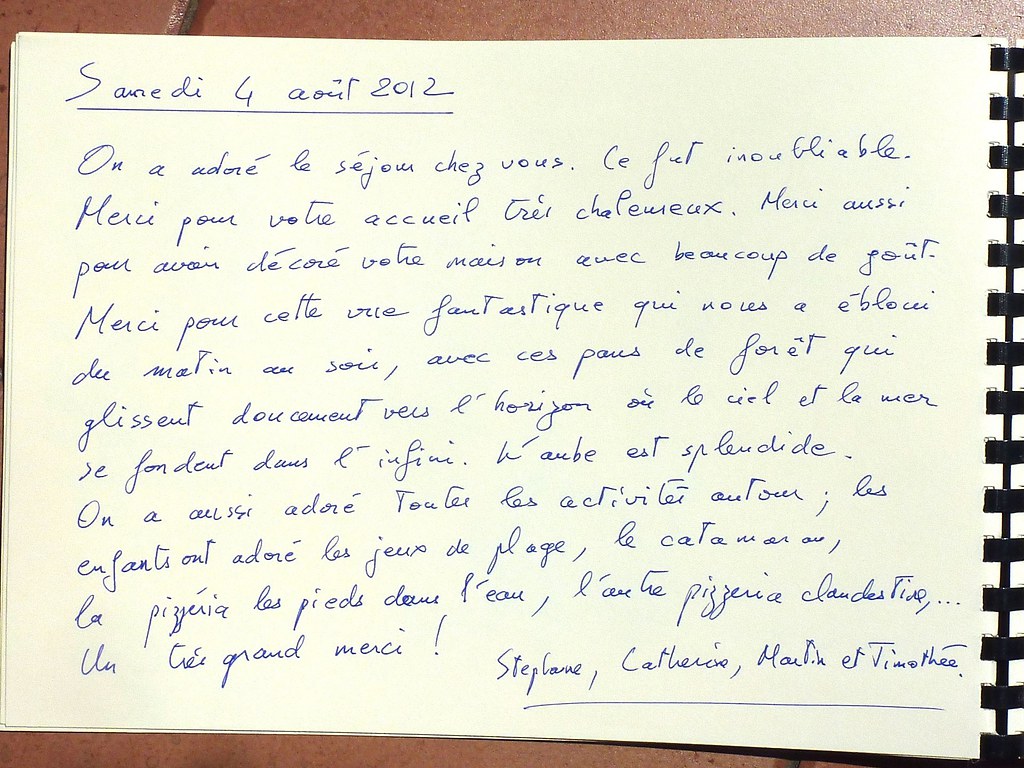 Samedi 4 août 2012
On a adoré le séjour chez vous. Ce fut inoubliable.
Merci pour votre accueil très chaleureux. Merci aussi
pour avoir décoré votre maison avec beaucoup de goût.
Merci pour cette vue fantastique qui nous a ébloui
du matin au soir, avec ces pans de forêt qui
glissent doucement vers l'horizon où le ciel et la mer
se fondent dans l'infini. L'aube est splendide.
On a aussi adoré toutes les activités autour ; les
enfants ont adoré les jeux de plage, le catamaran,
la pizzéria les pieds dans l'eau, l'autre pizzeria clandestine,...
Un très grand merci !
Stéphane, Catherine, Martin et Timothée.